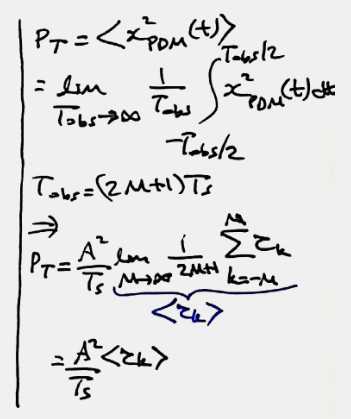 P_T = <x²_PDM(t)>
= lim_{T_obs→∞} 1/T_obs ∫_{-T_obs/2}^{T_obs/2} x²_PDM(t) dt
T_obs = (2M+1)T_s
⇒
P_T = A²/T_s lim_{M→∞} 1/(2M+1) Σ_{k=-M}^{M} τ_k
<τ_k>
= A²/T_s <τ_k>